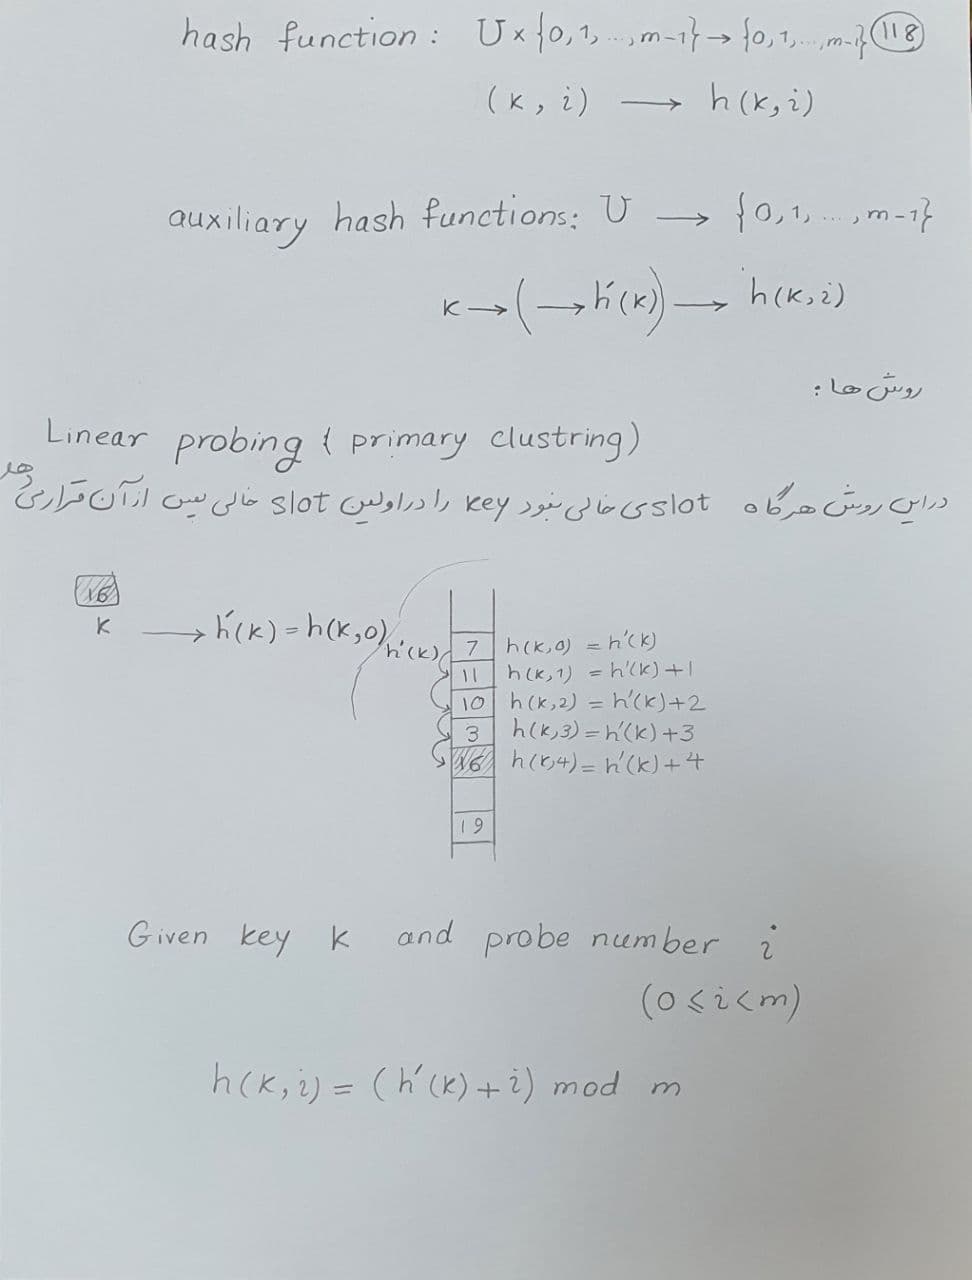 hash function : U x {0, 1, ..., m-1} → {0, 1, ..., m-1} 118
(k, i) → h(k, i)
auxiliary hash functions: U → {0, 1, ..., m-1}
k → ( → h'(k)) → h(k, i)
روش ها :
Linear probing { primary clustring)
در این روش هرگاه slot ی خالی نبود key را در اولین slot خالی پس از آن قرار می دهد
16
k → h'(k) = h(k, 0)
h'(k)
7 h(k, 0) = h'(k)
11 h(k, 1) = h'(k) + 1
10 h(k, 2) = h'(k) + 2
3 h(k, 3) = h'(k) + 3
16 h(k, 4) = h'(k) + 4
19
Given key k and probe number i
(0 ≤ i < m)
h(k, i) = (h'(k) + i) mod m